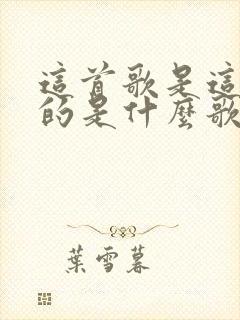 這首歌是這
的是什麼歌
葉雪暮